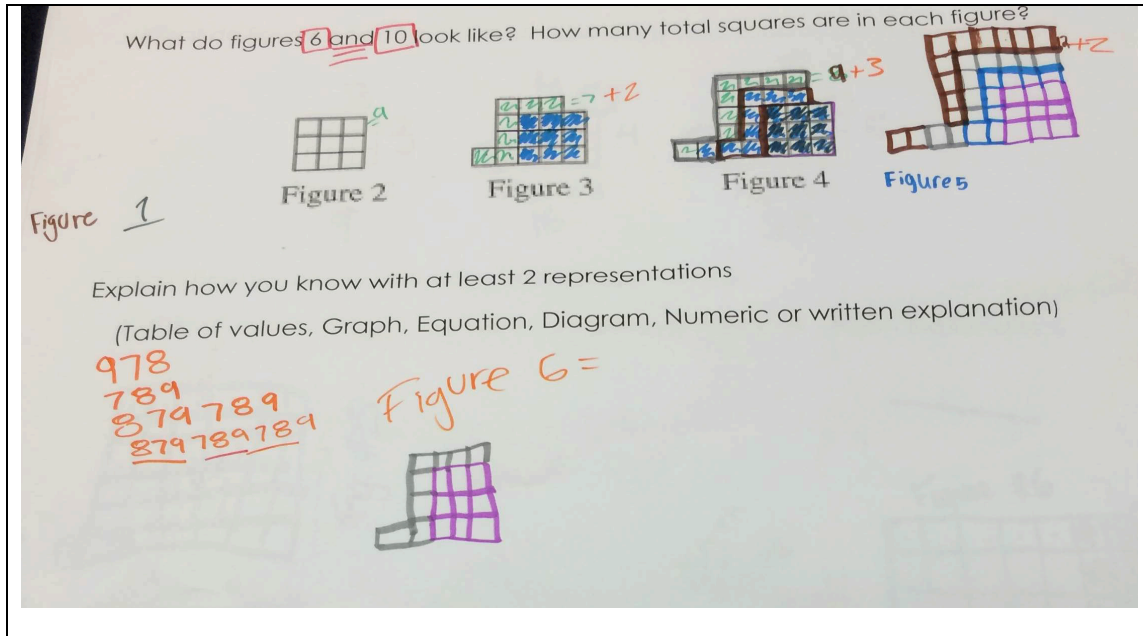 What do figures 6 and 10 look like? How many total squares are in each figure?
a
=7 +2
= 9 +3
+2
Figure 2
Figure 3
Figure 4
Figure 5
Figure 1
Explain how you know with at least 2 representations
(Table of values, Graph, Equation, Diagram, Numeric or written explanation)
978
789
879 789
879 789 789
Figure 6=